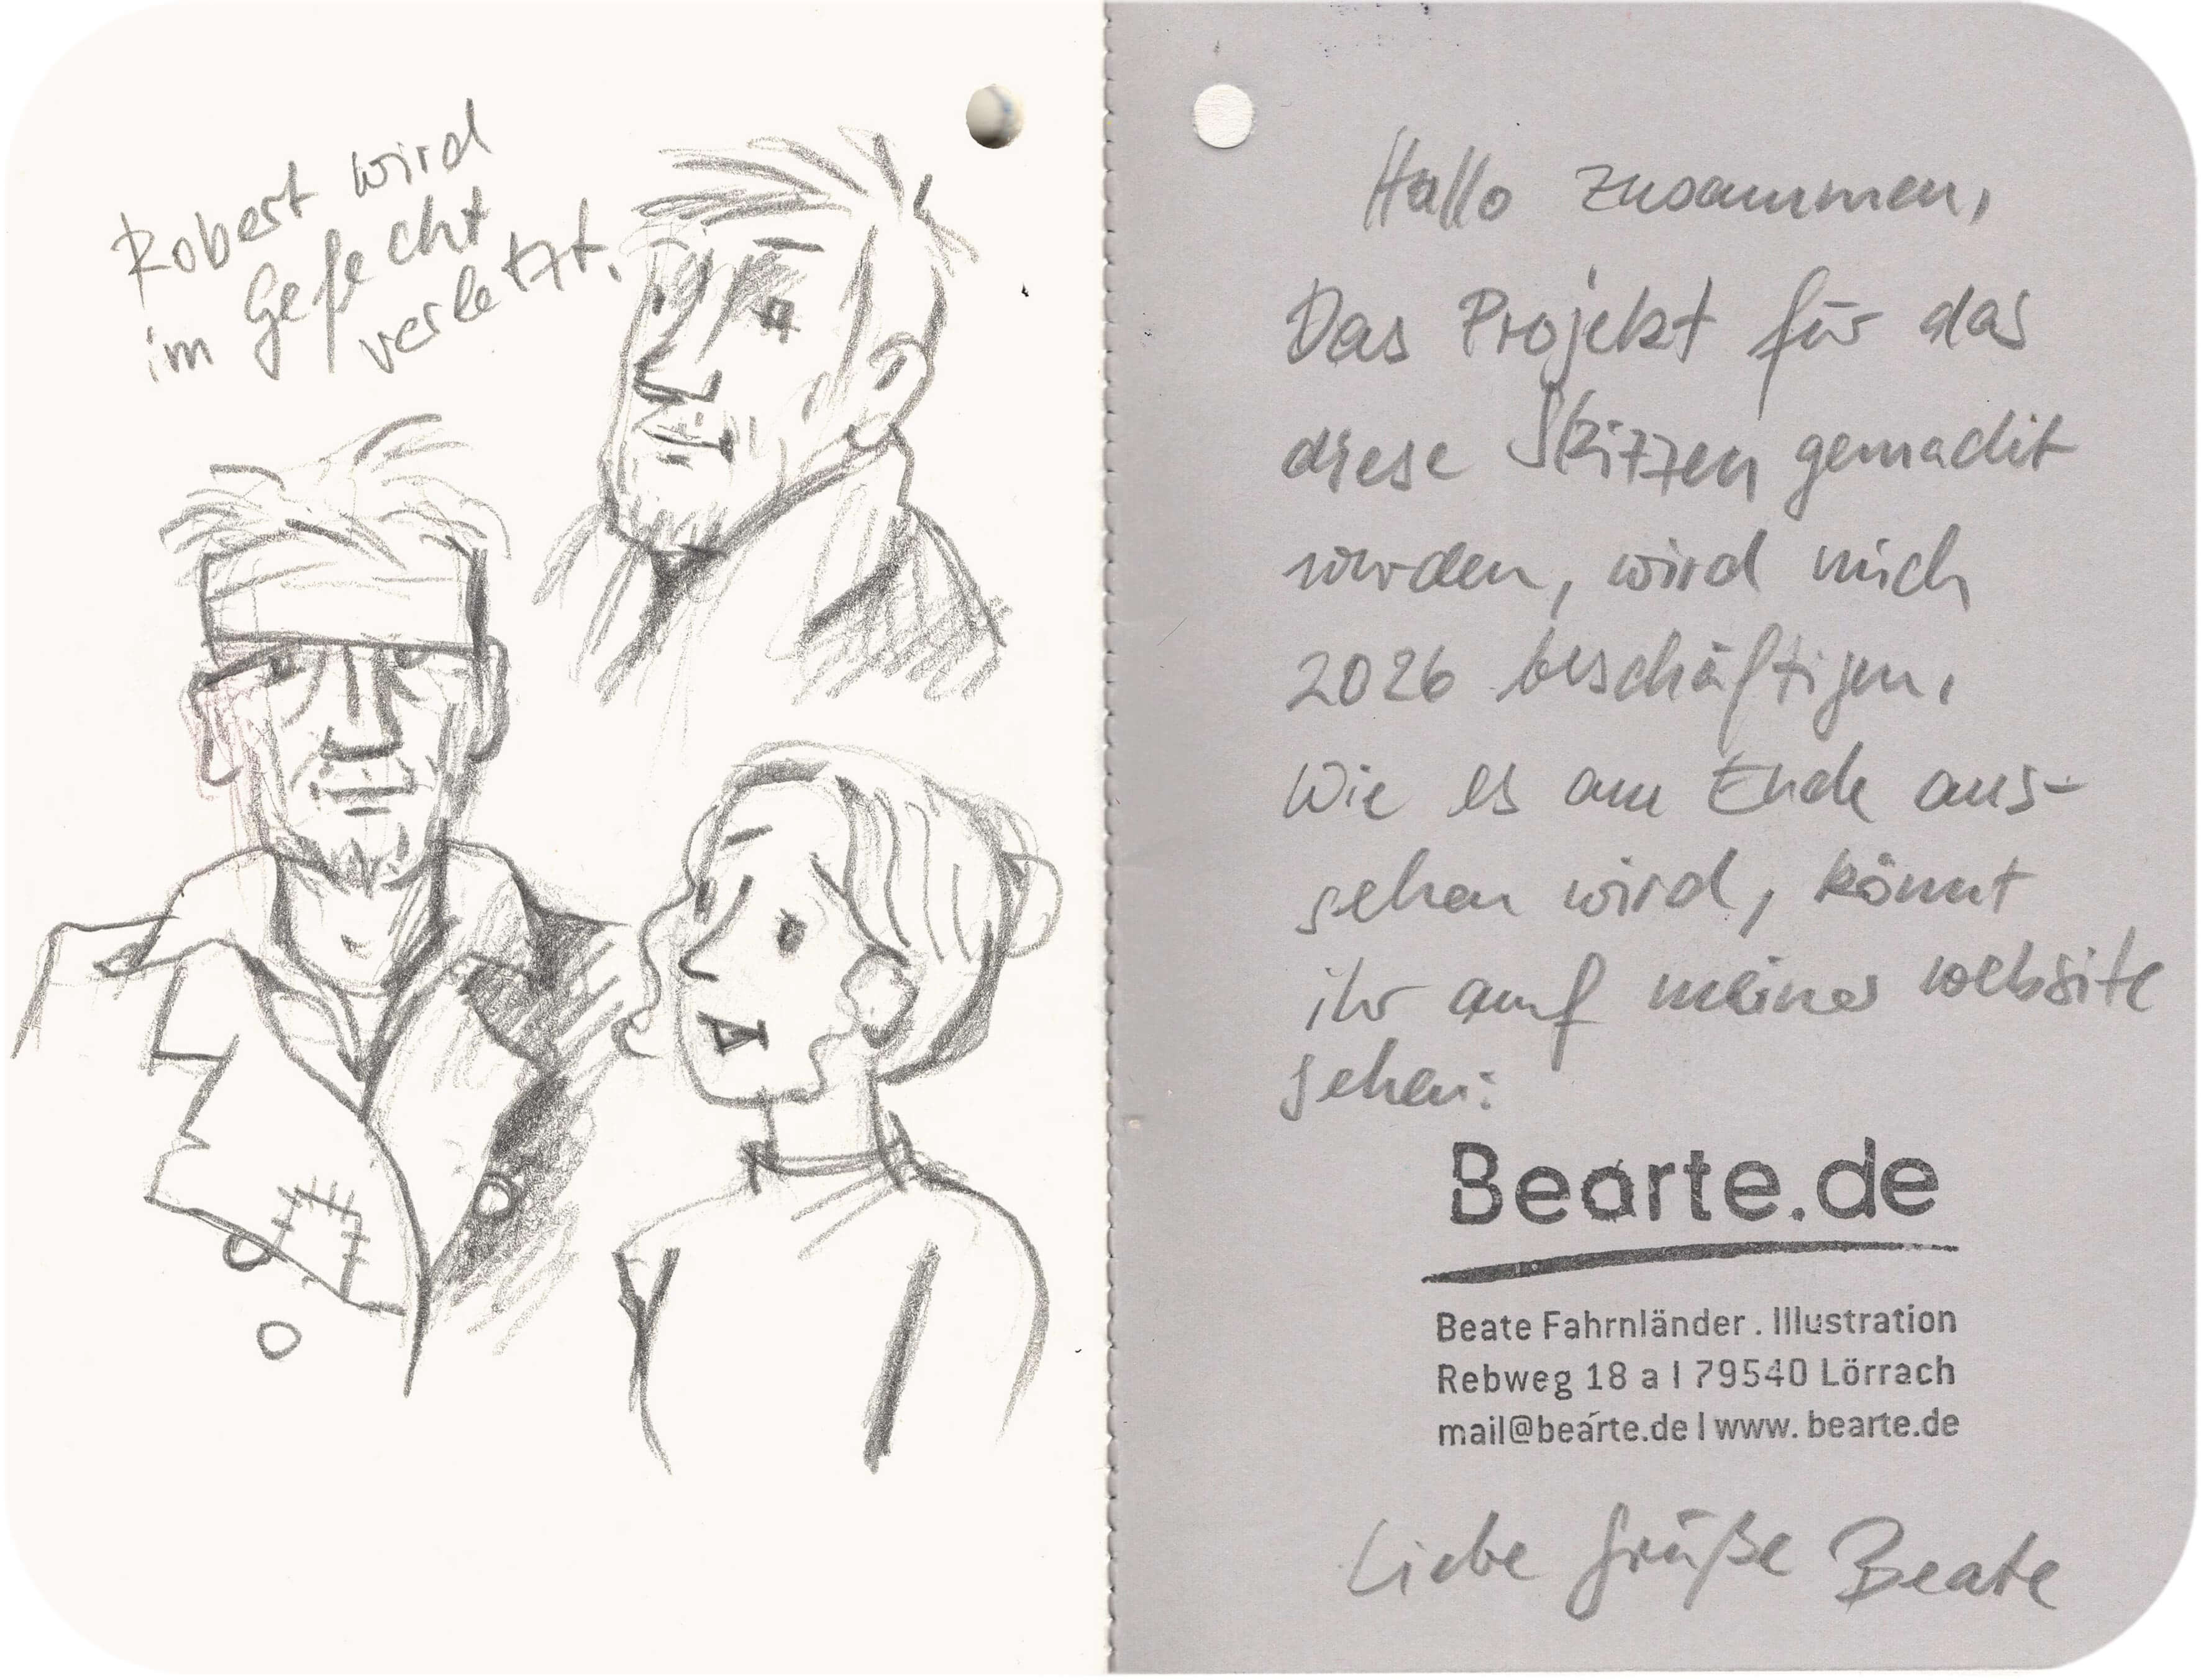 Robert wird
im Gefecht
verletzt.
Hallo zusammen,
Das Projekt für das
diese Skizzen gemacht
wurden, wird mich
2026 beschäftigen.
Wie es am Ende aus-
sehen wird, könnt
ihr auf meiner website
sehen:
Bearte.de
Beate Fahrnländer . Illustration
Rebweg 18 a | 79540 Lörrach
mail@bearte.de | www. bearte.de
Liebe Grüße Beate